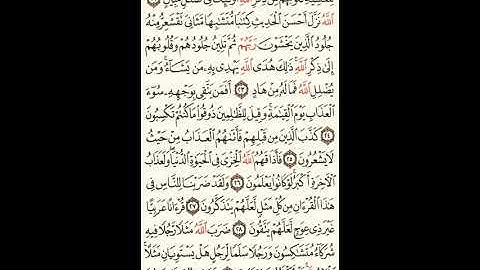 ٱللَّهُ نَزَّلَ أَحْسَنَ ٱلْحَدِيثِ كِتَٰبًا مُّتَشَٰبِهًا مَّثَانِيَ تَقْشَعِرُّ مِنْهُ
جُلُودُ ٱلَّذِينَ يَخْشَوْنَ رَبَّهُمْ ثُمَّ تَلِينُ جُلُودُهُمْ وَقُلُوبُهُمْ
إِلَىٰ ذِكْرِ ٱللَّهِ ذَٰلِكَ هُدَى ٱللَّهِ يَهْدِى بِهِۦ مَن يَشَآءُ وَمَن
يُضْلِلِ ٱللَّهُ فَمَا لَهُۥ مِنْ هَادٍ ٢٣ أَفَمَن يَتَّقِى بِوَجْهِهِۦ سُوٓءَ
ٱلْعَذَابِ يَوْمَ ٱلْقِيَٰمَةِ وَقِيلَ لِلظَّٰلِمِينَ ذُوقُوا۟ مَا كُنتُمْ تَكْسِبُونَ
٢٤ كَذَّبَ ٱلَّذِينَ مِن قَبْلِهِمْ فَأَتَىٰهُمُ ٱلْعَذَابُ مِنْ حَيْثُ
لَا يَشْعُرُونَ ٢٥ فَأَذَاقَهُمُ ٱللَّهُ ٱلْخِزْىَ فِى ٱلْحَيَوٰةِ ٱلدُّنْيَا وَلَعَذَابُ
ٱلْءَاخِرَةِ أَكْبَرُ لَوْ كَانُوا۟ يَعْلَمُونَ ٢٦ وَلَقَدْ ضَرَبْنَا لِلنَّاسِ فِى
هَٰذَا ٱلْقُرْءَانِ مِن كُلِّ مَثَلٍ لَّعَلَّهُمْ يَتَذَكَّرُونَ ٢٧ قُرْءَانًا عَرَبِيًّا
غَيْرَ ذِى عِوَجٍ لَّعَلَّهُمْ يَتَّقُونَ ٢٨ ضَرَبَ ٱللَّهُ مَثَلًا رَّجُلًا فِيهِ
شُرَكَآءُ مُتَشَٰكِسُونَ وَرَجُلًا سَلَمًا لِّرَجُلٍ هَلْ يَسْتَوِيَانِ مَثَلًا